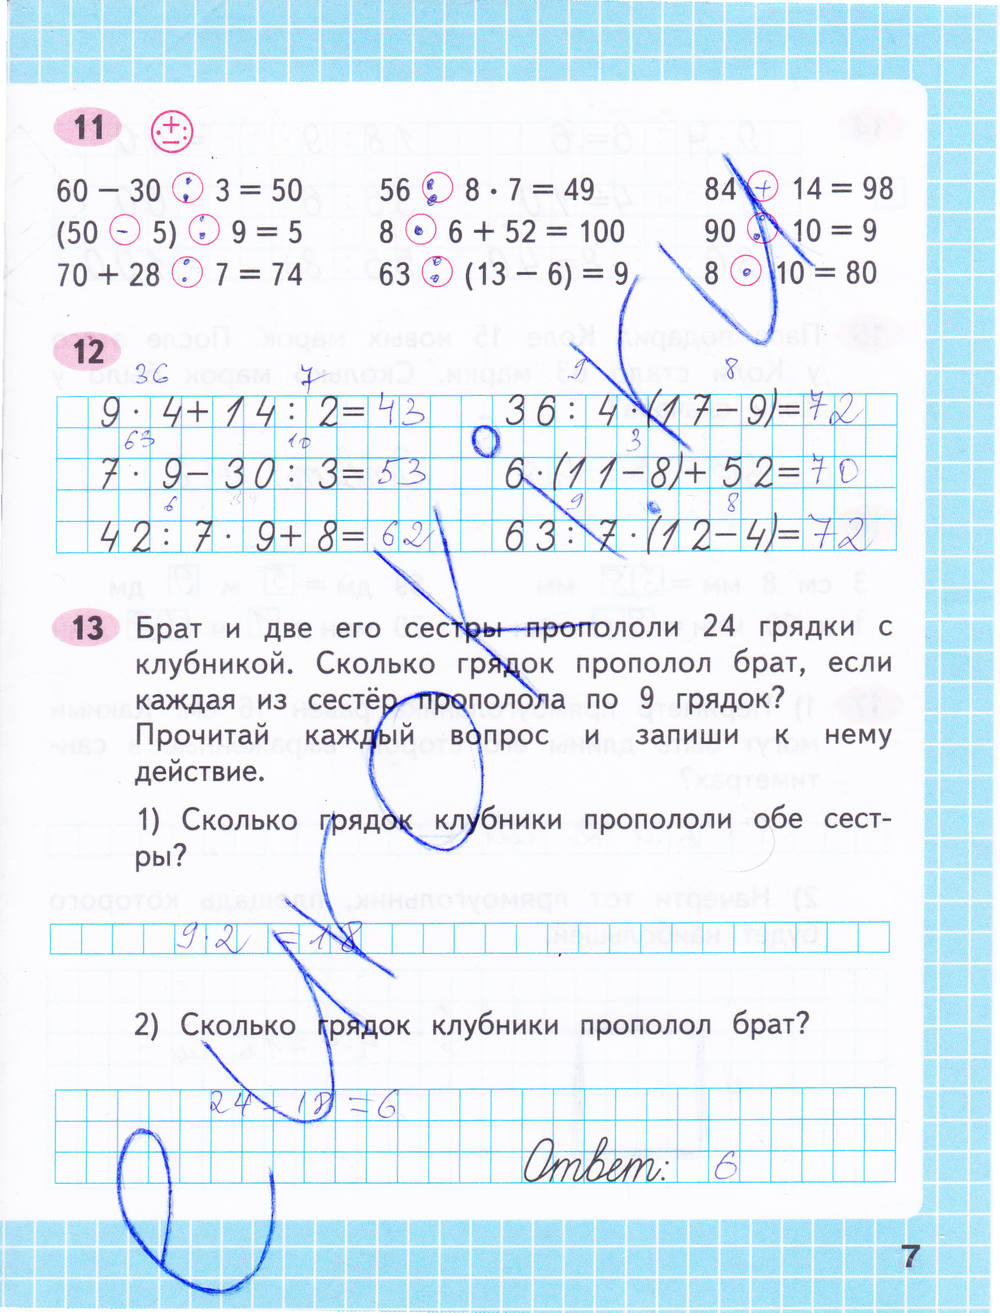 11
60 − 30 : 3 = 50
56 : 8 · 7 = 49
84 + 14 = 98
(50 - 5) : 9 = 5
8 · 6 + 52 = 100
90 : 10 = 9
70 + 28 : 7 = 74
63 : (13 − 6) = 9
8 · 10 = 80
12
36 7 9 8
9 · 4 + 14 : 2 = 43
36 : 4 · (17 − 9) = 72
63 10 3
7 · 9 − 30 : 3 = 53
6 · (11 − 8) + 52 = 70
6 54 9 8
42 : 7 · 9 + 8 = 62
63 : 7 · (12 − 4) = 72
13 Брат и две его сестры пропололи 24 грядки с
клубникой. Сколько грядок прополол брат, если
каждая из сестёр прополола по 9 грядок?
Прочитай каждый вопрос и запиши к нему
действие.
1) Сколько грядок клубники пропололи обе сест-
ры?
9·2 = 18
2) Сколько грядок клубники прополол брат?
24 - 18 = 6
Ответ: 6
7